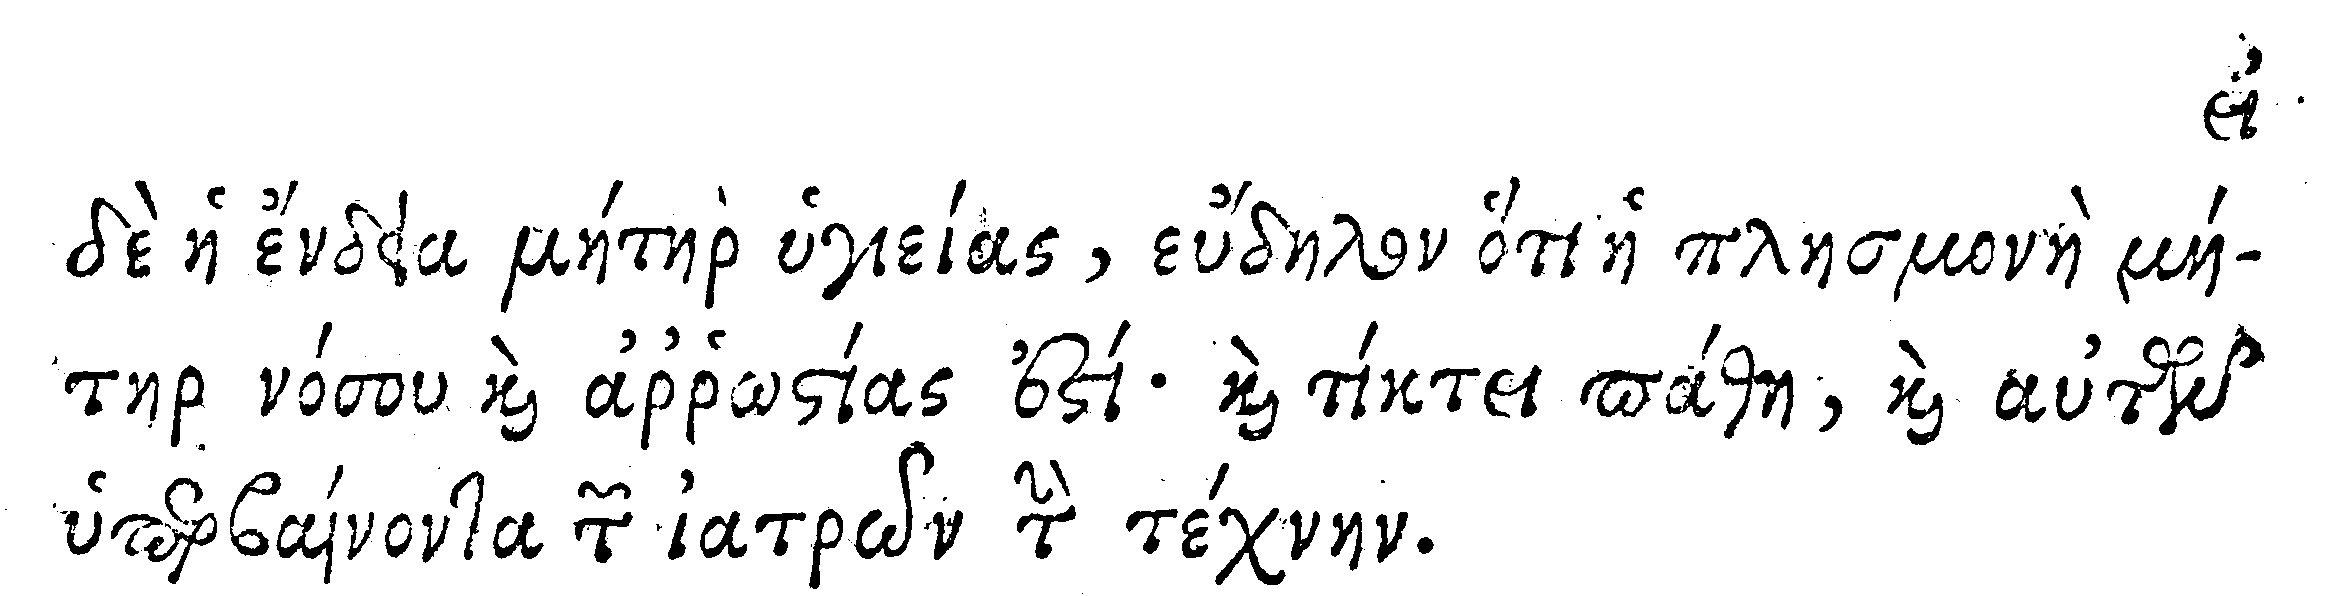 εἰ
δὲ ἡ ἔνδεια μήτηρ ὑγιείας, εὔδηλον ὅτι ἡ πλησμονὴ μή-
τηρ νόσου καὶ ἀῤῥωστίας ἐστί· καὶ τίκτει πάθη, καὶ αὐτὴν
ὑπερβαίνοντα τῶν ἰατρῶν τὴν τέχνην.